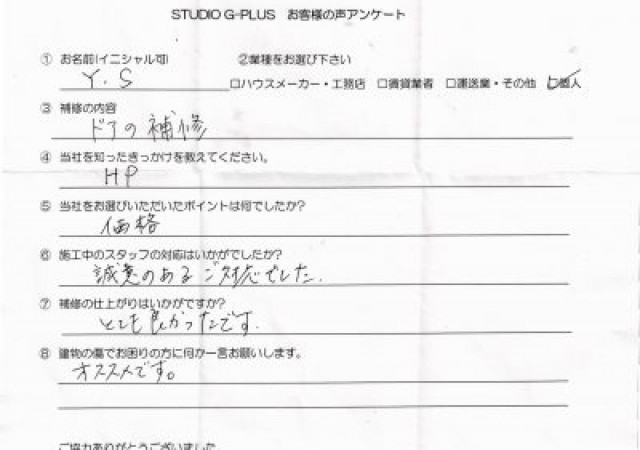 STUDIO G-PLUS お客様の声アンケート
① お名前(イニシャル可) ②業種をお選び下さい
Y.S □ハウスメーカー・工務店 □賃貸業者 □運送業・その他 ☑個人
③ 補修の内容
ドアの補修
④ 当社を知ったきっかけを教えてください。
HP
⑤ 当社をお選びいただいたポイントは何でしたか?
価格
⑥ 施工中のスタッフの対応はいかがでしたか?
誠意のあるご対応でした.
⑦ 補修の仕上がりはいかがですか?
とても良かったです.
⑧ 建物の傷でお困りの方に何か一言お願いします。
オススメです。
ご協力ありがとうございました